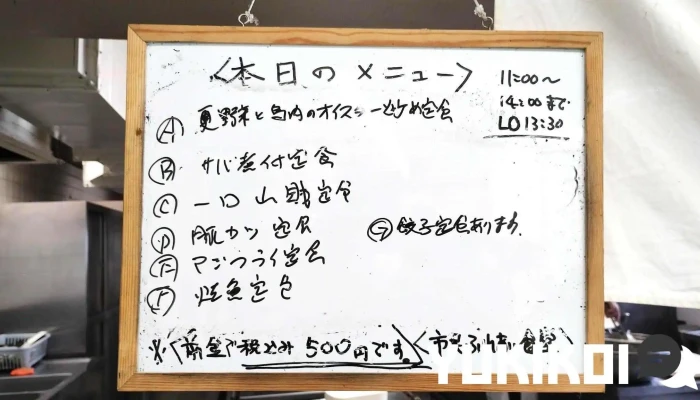 <本日のメニュー>
11:00〜
14:00まで
LO 13:30
Ⓐ 夏野菜と鳥肉のオイスター炒め定食
Ⓑ サバ煮付定食
Ⓒ 一口山賊定食
Ⓓ 豚カツ定食
Ⓖ 餃子定食あります。
Ⓔ アジフライ定食
Ⓕ 焼魚定食
※<前金で税込み500円です。>
<市さぶ
食堂>
YORIKOI